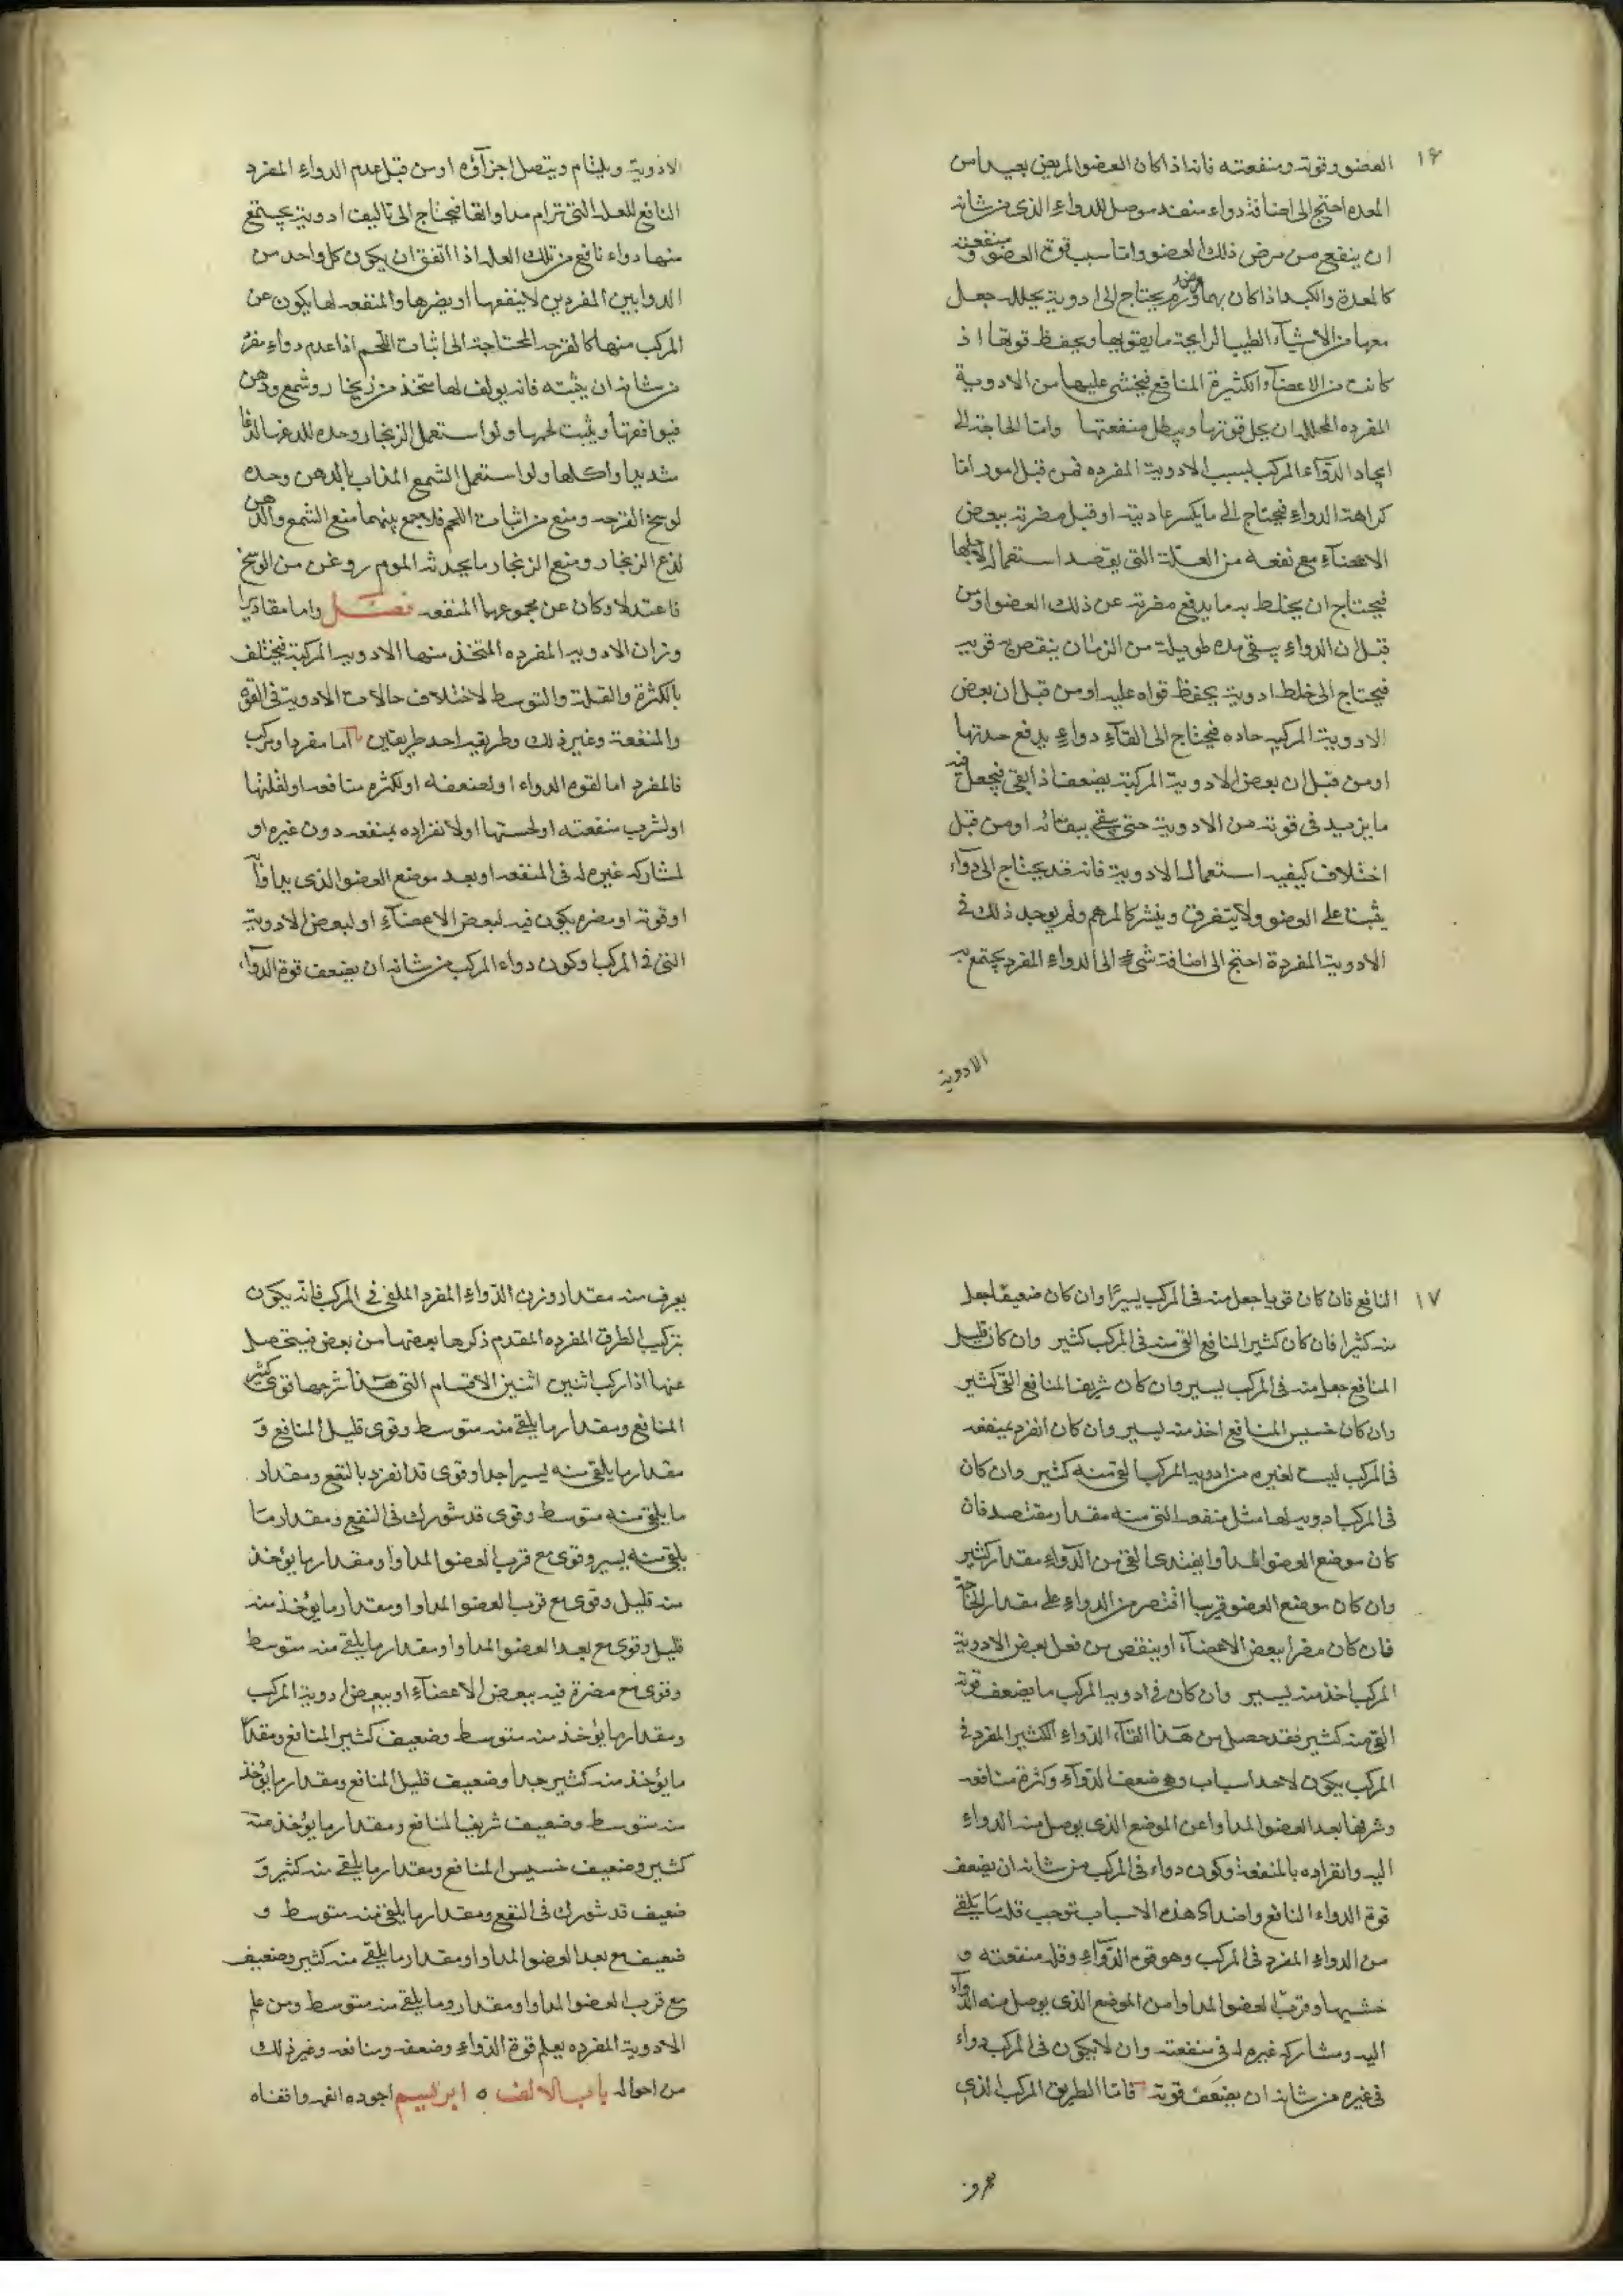 ١۶
العضو وقوته ومنفعته فانه اذا كان العضو المريض بعيدا من
المعده احتج الى اضافة دواء منفد موصل للدواء الذى من شانه
ان ينفع من مرض ذلك العضو واما سبب قوة العضو ومنفعته
كالمعدة والكبد اذا كان بهما ورم يحتاج الى ادوية يحلله جعل
معها من الاشيآء الطيب الرايحة ما يقويها ويحفظ قوتها اذ
كانت من الاعضآء الكثيرة المنافع فيخشى عليها من الادوية
المفرده المحلله ان يحل قوتها ويبطل منفعتها واما الحاجة الى
ايجاد الدوآء المركب بسبب الادوية المفرده فمن قبل امور اما
كراهة الدواء فيحتاج الى ما يكسر عاديته او قبل مضرته ببعض
الاعضآء مع نفعه من العلة التى يقصد استعماله لاجلها
فيحتاج ان يخلط به ما يدفع مضرته عن ذلك العضو او من
قبل ان الدواء يبقى مده طويلة من الزمان ينقص به قوته
فيحتاج الى خلط ادوية يحفظ قواه عليه او من قبل ان بعض
الادوية المركبه حاده فيحتاج الى القآء دواء يدفع حدتها
او من قبل ان بعض الادوية المركبة يضعف اذا بقى فيجعل فيه
ما يزيد فى قوته من الادوية حتى يبقى ببقائه او من قبل
اختلاف كيفيه استعمال الادوية فانه قد يحتاج الى دوآء
يثبت على العضو ولا يتفرق وينشر كالمرهم ولم يوجد ذلك فى
الادوية المفردة احتج الى اضافة شىء الى الدواء المفرد يجتمع به
الادوية
الادوية ويلتئام ويتصل اجزآؤه او من قبل عدم الدواء المفرد
النافع للعله التى ترام مداواتها فيحتاج الى تاليف ادوية يجتمع
منها دواء نافع من تلك العله اذا اتفق ان يكون كل واحد من
الدوايين المفردين لا ينفعها او يضرها والمنفعه لها يكون عن
المركب منها كالقرحه المحتاجة الى اثبات اللحم اذا عدم دواء مفرد
من شانه ان يثبته فانه يولف لها متخذ من زنجار وشمع ودهن
فيوافقها ويثبت لحمها ولو استعمل الزنجار وحده للدغها لدغا
شديدا واكلها ولو استعمل الشمع المذاب بالدهن وحده
لوسخ القرحه ومنع من اثبات اللحم فلا جمع بينهما منع الشمع والدهن
لذع الزنجار ومنع الزنجار ما يحدثه الموم روغن من الوسخ
فاعتدلا وكان عن مجموعهما المنفعه فصل واما مقادير
وزان الادويه المفرده المتخذ منها الادويه المركبة فيختلف
بالكثرة والقلة والتوسط لاختلاف حالات الادوية فى القوه
والمنفعة وغير ذلك وطريقه احد طريقين اما مفرد او مركب
فالمفرد اما لقوه الدواء او لضعفه او لكثره منافعه او لقلتها
او لشرب منفعته او لخستها او لانفراده بمنفعه دون غيره او
لمشاركه غيره له فى المنفعه او بعد موضع العضو الذى يداوا به
او قوته او مضره يكون فيه لبعض الاعضآء او لبعض الادوية
التى فى المركب او كون دواء المركب من شانه ان يضعف قوة الدوآء
١٧
النافع فان كان قويا جعل منه فى المركب يسيرا وان كان ضعيفا جعل
منه كثيرا فان كان كثير المنافع القى منه فى المركب كثير وان كان قليل
المنافع جعل منه فى المركب يسير وان كان شريف المنافع القى كثير
وان كان خسيس المنافع اخذ منه يسير وان كان انفرد بمنفعه
فى المركب ليست لغيره من ادويه المركب القى منه كثير وان كان
فى المركب ادويه لها مثل منفعه القى منه مقدار مقتصد فان
كان موضع العضو المداوا القى من الدوآء مقدار كثير
وان كان موضع العضو قريبا اقتصر من الدواء على مقدار الحاجة
فان كان مضرا ببعض الاعضآء او ينقص من فعل بعض الادوية
المركب اخذ منه يسير وان كان فى ادويه المركب ما يضعف قوته
القى منه كثير فقد حصل من هذا القآء الدواء الكثير المفرد فى
المركب يكون لاحد اسباب وهو ضعف الدوآء وكثرة منافعه
وشرفها بعد العضو المداوا عن الموضع الذى يوصل منه الدواء
اليه وانفراده بالمنفعة وكون دواء فى المركب من شانه ان يضعف
قوة الدواء النافع واضداد هذه الاسباب توجب قلة ما يلقى
من الدواء المفرد فى المركب وهو قوه الدوآء وقله منفعته و
خسها وقرب العضو المداوا من الموضع الذى يوصل منه الدوآء
اليه ومشاركه غيره له فى منفعته وان لا يكون فى المركب دواء
فى غيره من شانه ان يضعف قوته فاما الطريق المركب الذى
يعرف منه مقدار وزن الدواء المفرد الملقى فى المركب فانه يكون
بتركيب الطرق المفرده المقدم ذكرها بعضها من بعض فيتحصل
عنها اذا ركب اثنين اثنين الاقسام التى هذا شرحها قوى كثير
المنافع ومقدار ما يلقى منه متوسط وقوى قليل المنافع و
مقدار ما يلقى منه يسيرا جدا وقوى قد انفرد بالنفع ومقدار
ما يلقى منه متوسط وقوى قد شورك فى النفع ومقدار ما
يلقى منه يسير وقوى مع قرب العضو المداوا ومقدار ما يؤخذ
منه قليل وقوى مع قرب العضو المداوا ومقدار ما يؤخذ منه
قليل وقوى مع بعد العضو المداوا ومقدار ما يلقى منه متوسط
وقوى مع مضرة فيه ببعض الاعضآء او ببعض ادوية المركب
ومقدار ما يؤخذ منه متوسط وضعيف كثير المنافع ومقدار
ما يؤخذ منه كثير جدا وضعيف قليل المنافع ومقدار ما يؤخذ
منه متوسط وضعيف شريف المنافع ومقدار ما يؤخذ منه
كثير وضعيف خسيس المنافع ومقدار ما يلقى منه كثير و
ضعيف قد شورك فى النفع ومقدار ما يلقى منه متوسط و
ضعيف مع بعد العضو المداوا ومقدار ما يلقى منه كثير وضعيف
مع قرب العضو المداوا ومقدار وما يلقى منه متوسط ومن علم
الادوية المفرده يعلم قوة الدواء وضعفه ومنافعه وغير ذلك
من احواله باب الالف ه ابريسم اجوده انقه واقفاه